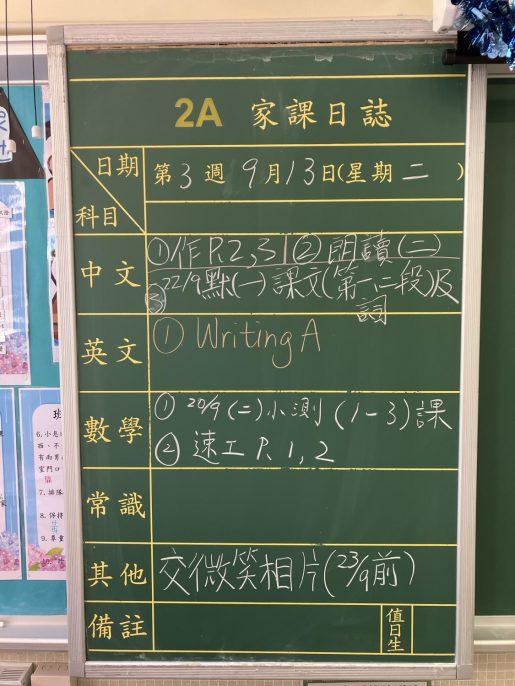 2A 家課日誌
日期
第 3 週 9 月 13 日(星期 二 )
科目
中文
①作 P.2,3 ② 朗讀(二)
③ 22/9 默(一) 課文(第一、二段)及
詞
英文
① Writing A
數學
① 20/9 (二)小測 (1-3)課
② 速工 P. 1,2
常識
其他
交微笑相片(23/9前)
備註
值日生
7. 排隊